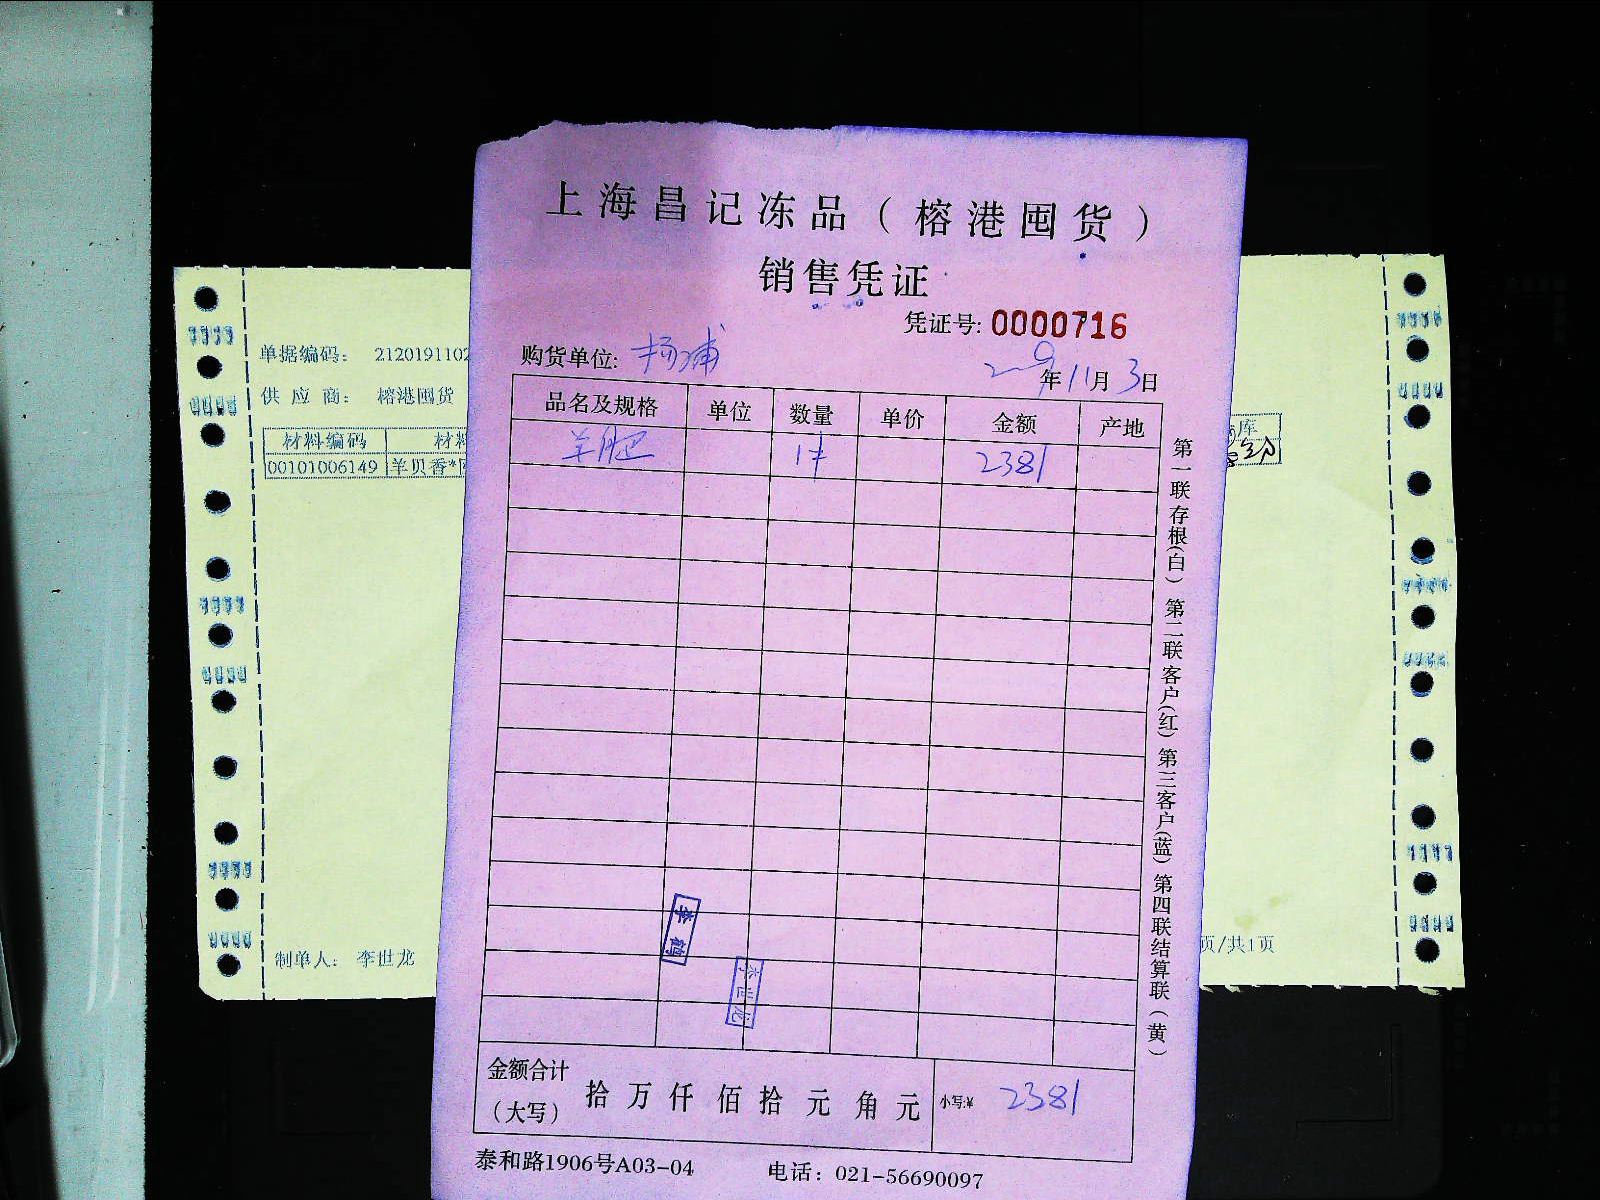 上海昌记冻品（榕港囤货）
销售凭证
凭证号: 0000716
购货单位: 杨浦
年 11月 3日
品名及规格 单位 数量 单价 金额 产地
羊肥 1件 2381
第一联存根(白) 第二联客户(红) 第三客户(蓝) 第四联结算联（黄）
李鹤
李世龙
金额合计（大写） 拾 万 仟 佰 拾 元 角 元 小写:¥ 2381
泰和路1906号A03-04 电话：021-56690097
单据编码： 2120191102
供应商： 榕港囤货
材料编码 材料
00101006149 羊贝香*
库
制单人： 李世龙
页/共1页